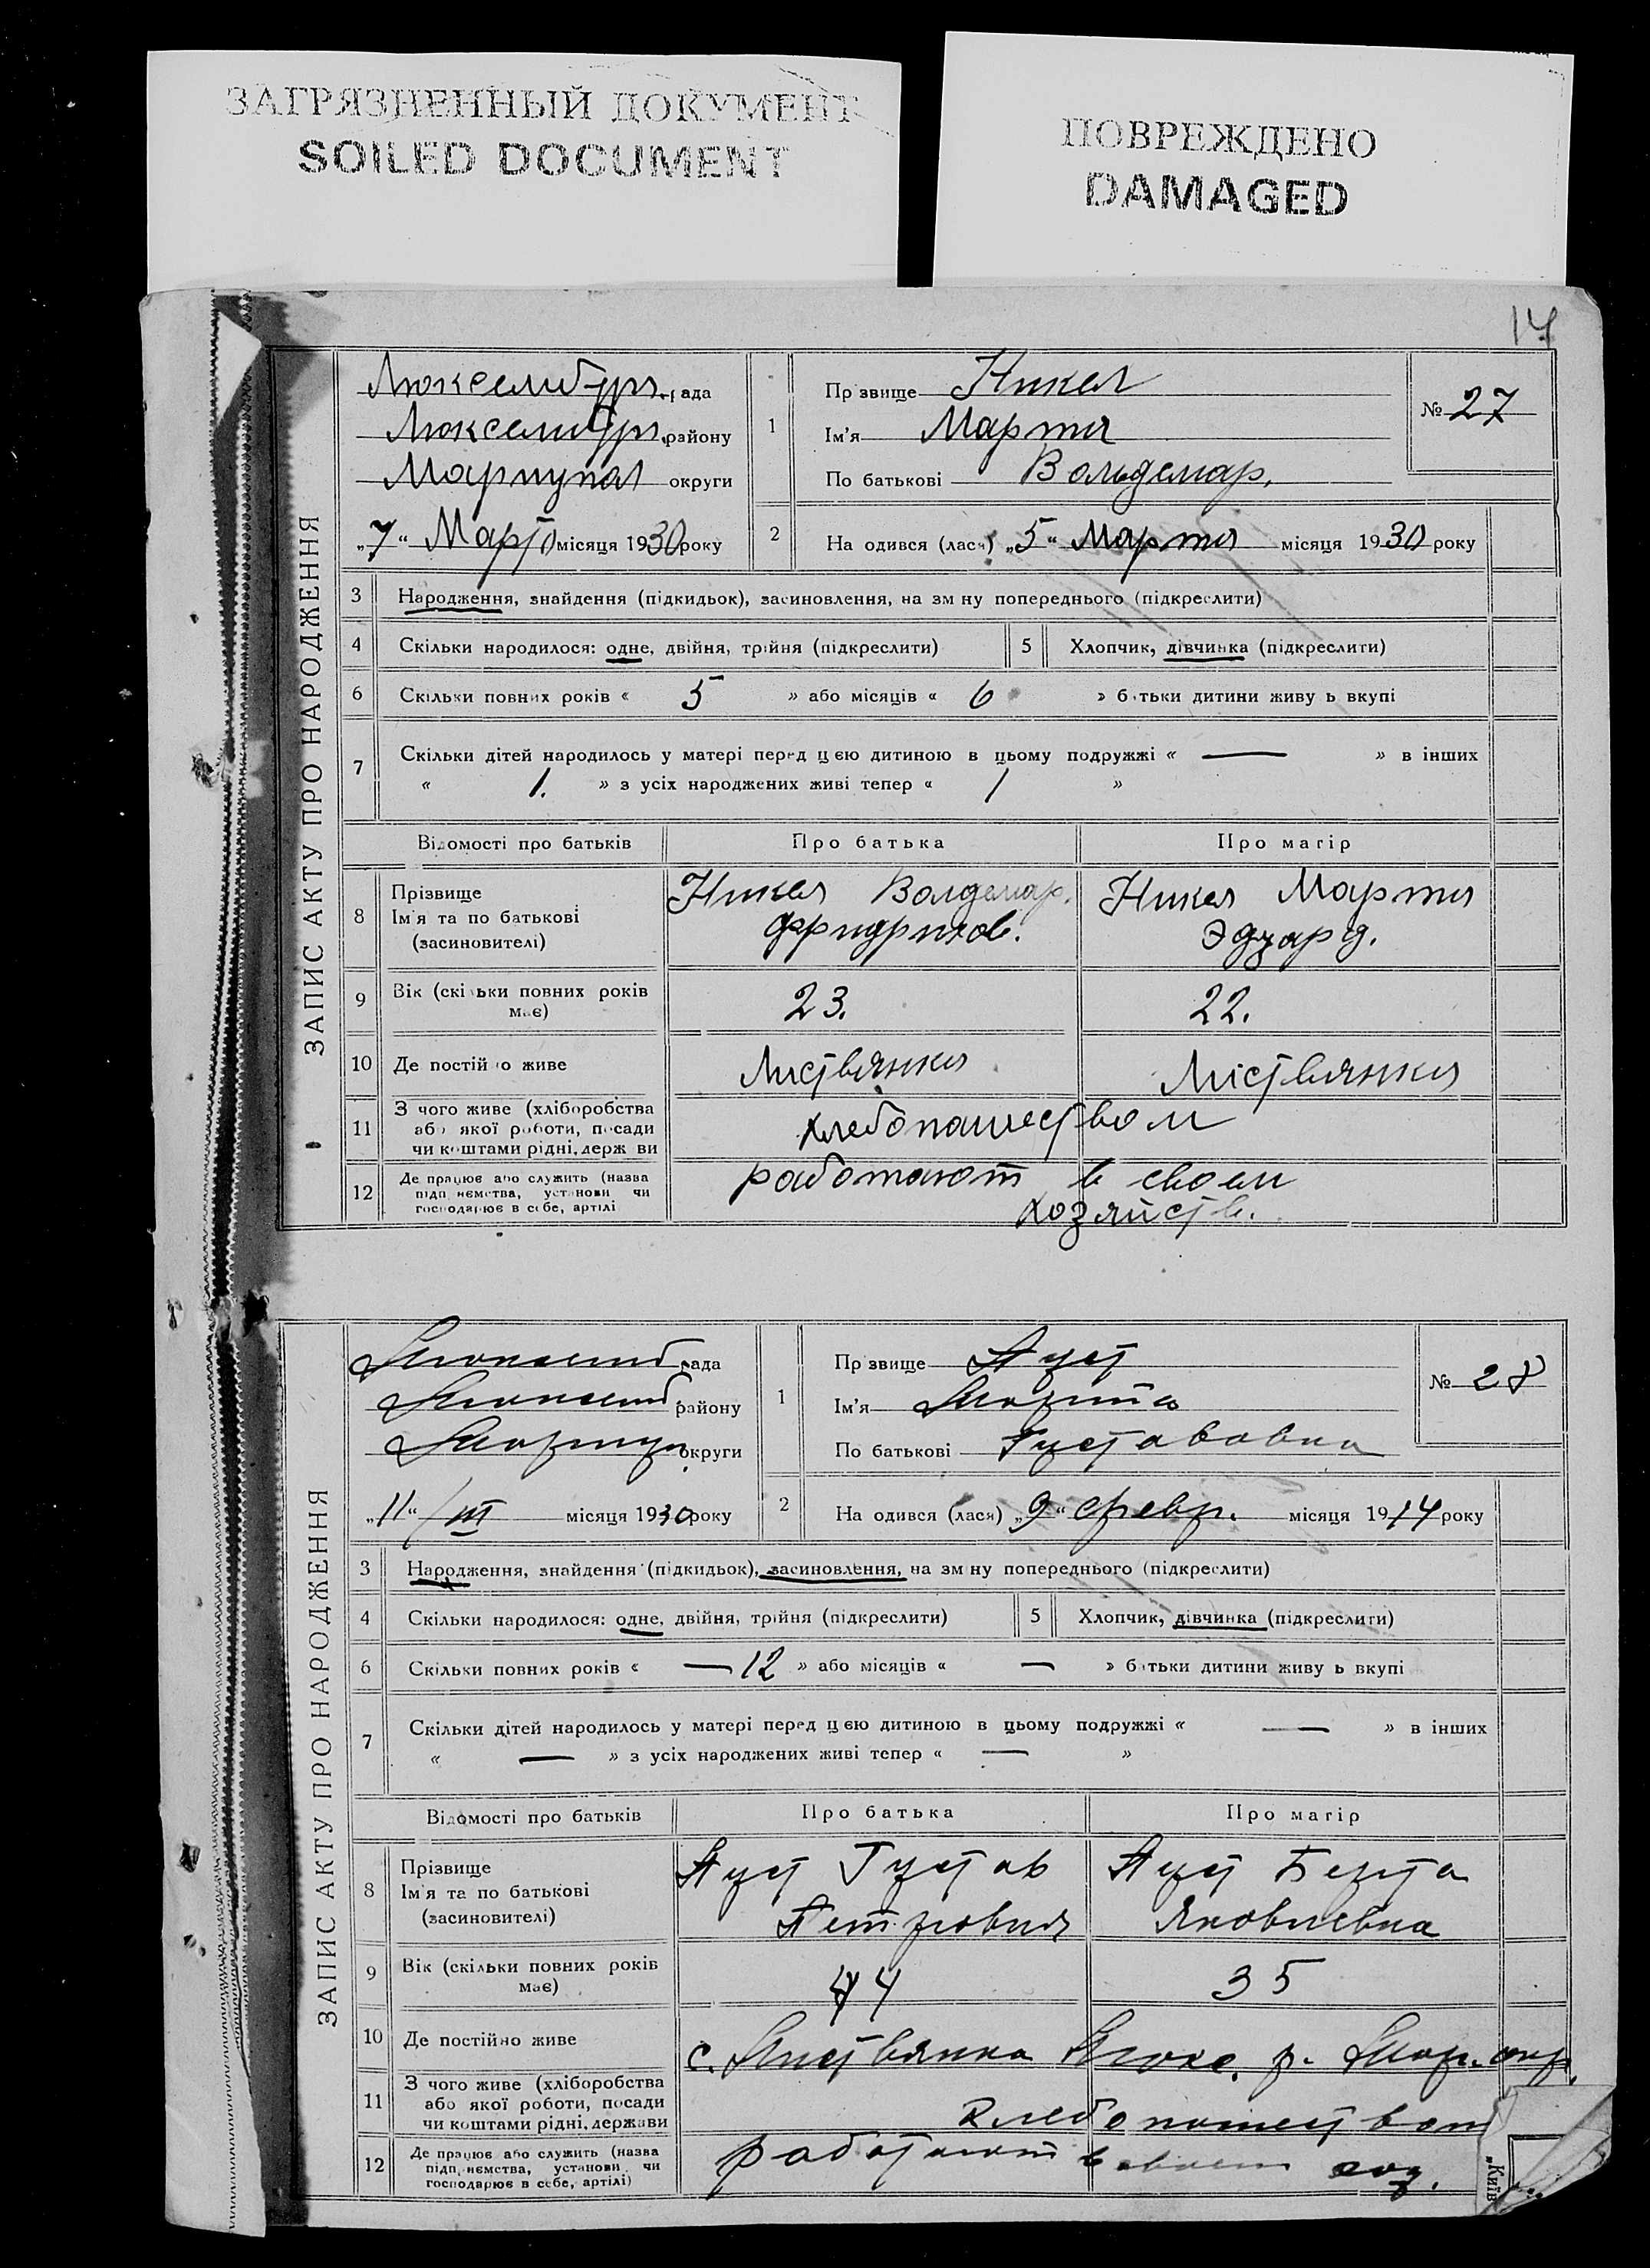 ЗАГРЯЗНЕННЫЙ ДОКУМЕНТ
SOILED DOCUMENT
ПОВРЕЖДЕНО
DAMAGED
17
ЗАПИС АКТУ ПРО НАРОДЖЕННЯ
Люксембург. рада
Люксембург. району
Мариупол округи
„7“ Марта місяця 1930 року
1 Прзвище Никел
Ім'я Марта
По батькові Вольдемар.
№ 27
2 На одився (лася) „5“ Марта місяця 1930 року
3 Народження, знайдення (підкидьок), засиновлення, на зм ну попереднього (підкреслити)
4 Скільки народилося: одне, двійня, трійня (підкреслити) 5 Хлопчик, дівчинка (підкреслити)
6 Скільки повних років « 5 » або місяців « 6 » батьки дитини живу ь вкупі
7 Скільки дітей народилось у матері перед цією дитиною в цьому подружжі « — » в інших
« 1. » з усіх народжених живі тепер « 1 »
Відомості про батьків Про батька Про матір
8 Прізвище
Ім'я та по батькові
(засиновителі)
Никел Волдемар.
Фридрихов.
Никел Марта
Эдуард.
9 Вік (скільки повних років
має)
23. 22.
10 Де постійно живе Листвянка Листвянка
11 З чого живе (хліборобства
або якої роботи, посади
чи коштами рідні, держ ви
хлебопашеством
12 Де працює або служить (назва
підп иємства, установи чи
господарює в себе, артілі
работают в своем
хозяйств.
ЗАПИС АКТУ ПРО НАРОДЖЕННЯ
Люксемб рада
Люксемб району
Мариуп округи
„11“ / III місяця 1930 року
1 Прзвище Пуст
Ім'я Марта
По батькові Густавовна
№ 28
2 На одився (лася) „9“ февр. місяця 1914 року
3 Народження, знайдення (підкидьок), засиновлення, на зм ну попереднього (підкреслити)
4 Скільки народилося: одне, двійня, трійня (підкреслити) 5 Хлопчик, дівчинка (підкреслити)
6 Скільки повних років « — 12 » або місяців « — » батьки дитини живу ь вкупі
7 Скільки дітей народилось у матері перед цією дитиною в цьому подружжі « — » в інших
« — » з усіх народжених живі тепер « — »
Відомості про батьків Про батька Про матір
8 Прізвище
Ім'я та по батькові
(засиновителі)
Пуст Густав
Петрович
Пуст Берта
Яковлевна
9 Вік (скільки повних років
має)
44 35
10 Де постійно живе с. Листвянка Люкс. р. Мар. окр.
11 З чого живе (хліборобства
або якої роботи, посади
чи коштами рідні, держави
Хлебопашеством
12 Де працює або служить (назва
підприємства, установи чи
господарює в себе, артілі)
работают в своем хоз.
„Київ